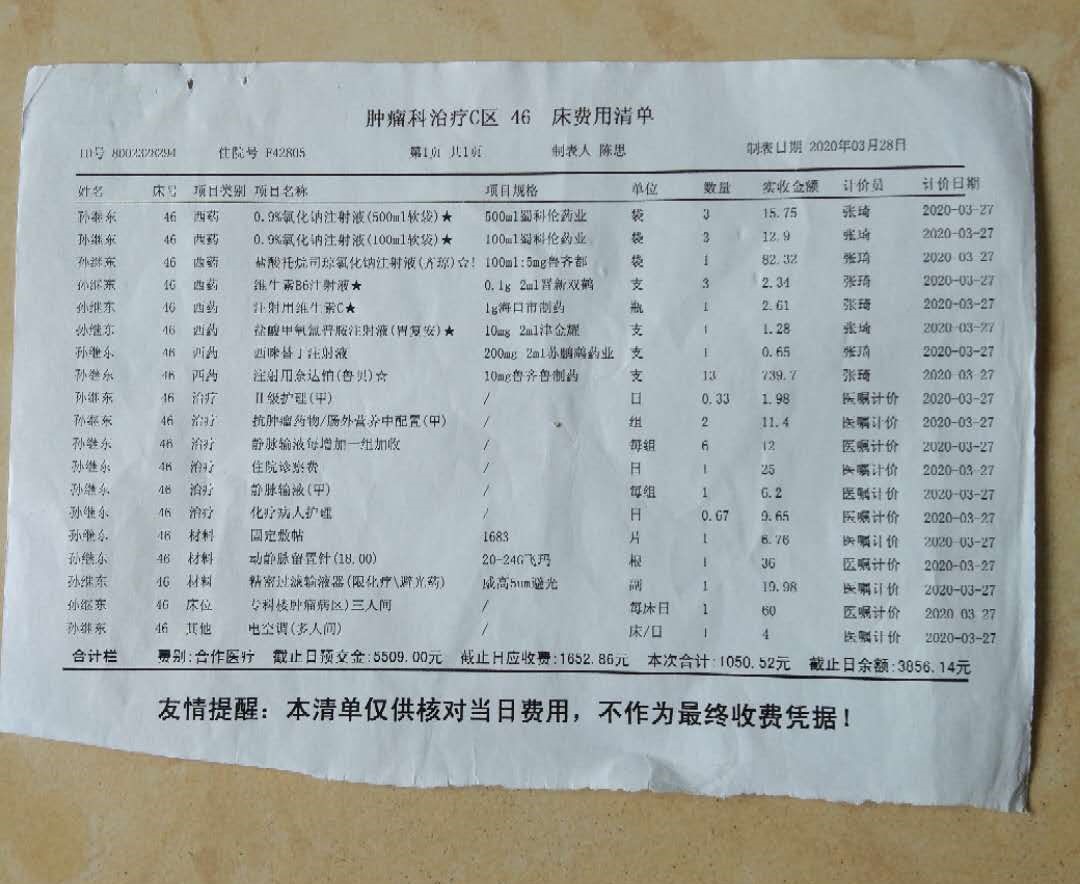 肿瘤科治疗C区 46 床费用清单
ID号 8002328294 住院号 F42805 第1页 共1页 制表人 陈思 制表日期 2020年03月28日
姓名 床号 项目类别 项目名称 项目规格 单位 数量 实收金额 计价员 计价日期
孙继东 46 西药 0.9%氯化钠注射液(500ml软袋)★ 500ml蜀科伦药业 袋 3 15.75 张琦 2020-03-27
孙继东 46 西药 0.9%氯化钠注射液(100ml软袋)★ 100ml蜀科伦药业 袋 3 12.9 张琦 2020-03-27
孙继东 46 西药 盐酸托烷司琼氯化钠注射液(齐琼)☆! 100ml:5mg鲁齐都 袋 1 82.32 张琦 2020-03-27
孙继东 46 西药 维生素B6注射液★ 0.1g 2ml晋新双鹤 支 3 2.34 张琦 2020-03-27
孙继东 46 西药 注射用维生素C★ 1g海口市制药 瓶 1 2.61 张琦 2020-03-27
孙继东 46 西药 盐酸甲氧氯普胺注射液(胃复安)★ 10mg 2ml津金耀 支 1 1.28 张琦 2020-03-27
孙继东 46 西药 西咪替丁注射液 200mg 2ml苏鹏鹞药业 支 1 0.65 张琦 2020-03-27
孙继东 46 西药 注射用奈达铂(鲁贝)☆ 10mg鲁齐鲁制药 支 13 739.7 张琦 2020-03-27
孙继东 46 治疗 II级护理(甲) / 日 0.33 1.98 医嘱计价 2020-03-27
孙继东 46 治疗 抗肿瘤药物/肠外营养中配置(甲) / 组 2 11.4 医嘱计价 2020-03-27
孙继东 46 治疗 静脉输液每增加一组加收 / 每组 6 12 医嘱计价 2020-03-27
孙继东 46 治疗 住院诊察费 / 日 1 25 医嘱计价 2020-03-27
孙继东 46 治疗 静脉输液(甲) / 每组 1 6.2 医嘱计价 2020-03-27
孙继东 46 治疗 化疗病人护理 / 日 0.67 9.65 医嘱计价 2020-03-27
孙继东 46 材料 固定敷帖 1683 片 1 6.76 医嘱计价 2020-03-27
孙继东 46 材料 动静脉留置针(18.00) 20-24G飞玛 根 1 36 医嘱计价 2020-03-27
孙继东 46 材料 精密过滤输液器(限化疗\避光药) 威高5um避光 副 1 19.98 医嘱计价 2020-03-27
孙继东 46 床位 专科楼肿瘤病区)三人间 / 每床日 1 60 医嘱计价 2020-03-27
孙继东 46 其他 电空调(多人间) / 床/日 1 4 医嘱计价 2020-03-27
合计栏 费别:合作医疗 截止日预交金:5509.00元 截止日应收费:1652.86元 本次合计:1050.52元 截止日余额:3856.14元
友情提醒：本清单仅供核对当日费用，不作为最终收费凭据！